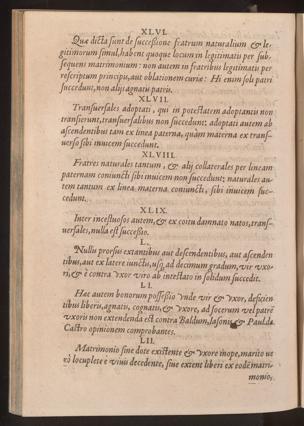 XLVI.
Quæ dicta sunt de successione fratrum naturalium & le-
gitimorum simul, habent quoque locum in legitimatis per sub-
sequens matrimonium: non autem in fratribus legitimatis per
rescriptum principis, aut oblationem curiæ: Hi enim soli patri
succedunt, non alijs agnatis patris.
XLVII.
Transuersales adoptati, qui in potestatem adoptantis non
transierunt, transuersalibus non succedunt; adoptati autem ab
ascendentibus tam ex linea paterna, quàm materna ex trans-
uerso sibi inuicem succedunt.
XLVIII.
Fratres naturales tantum, & alij collaterales per lineam
paternam coniuncti sibi inuicem non succedunt; naturales au-
tem tantum ex linea materna coniuncti, sibi inuicem suc-
cedunt.
XLIX.
Inter incestuosos autem, & ex coitu damnato natos, trans-
uersales, nulla est successio.
L.
Nullis prorsus extantibus aut descendentibus, aut ascenden
tibus, aut ex latere iunctis, usq; ad decimum gradum, vir vxo-
ri, & è contra vxor viro ab intestato in solidum succedit.
LI.
Hæc autem bonorum possessio vnde vir & vxor, deficien
tibus liberis, agnatis, cognatis, & vxore, ad socerum vel patrē
vxoris non extendenda est contra Baldum, Iasonis, & Paul. de
Castro opinionem comprobantes.
LII.
Matrimonio sine dote existente & vxore inope, marito ue
rò locuplete è viuis decedente, siue extent liberi ex eodē matri-
monio,